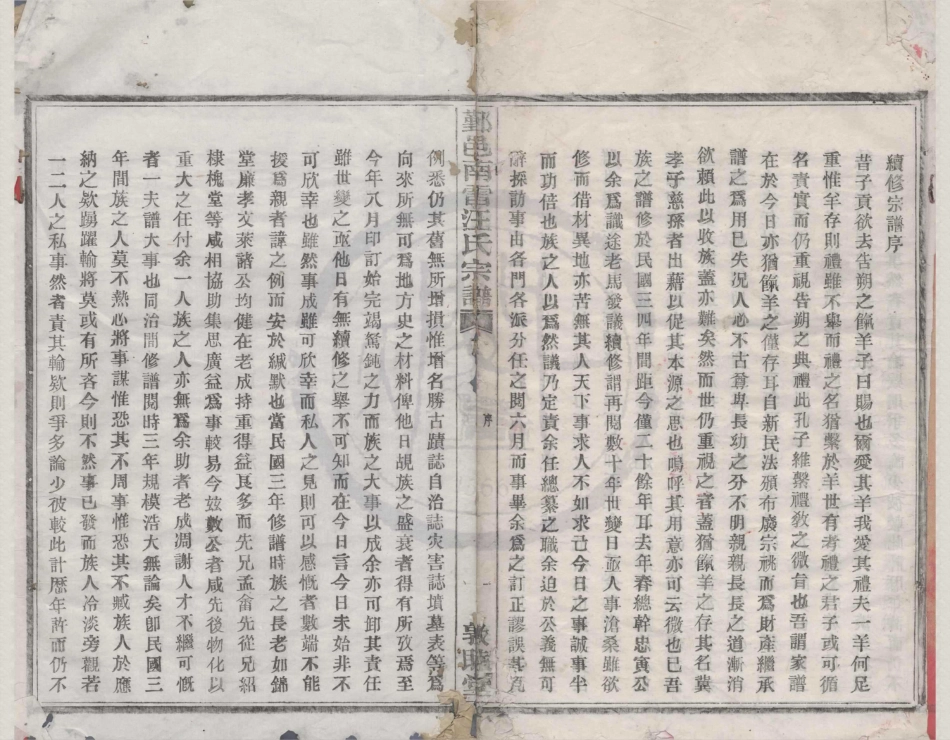 續修宗譜序
昔子貢欲去告朔之餼羊子曰賜也爾愛其羊我愛其禮夫一羊何足
重惟羊存則禮雖不舉而禮之名猶繫於羊世有考禮之君子或可循
名責實而仍重視告朔之典禮此孔子維繫禮敎之微旨也吾謂家譜
在於今日亦猶餼羊之僅存耳自新民法頒布廢宗祧而爲財產繼承
譜之爲用已失况人心不古尊卑長幼之分不明親親長長之道漸消
欲賴此以收族蓋亦難矣然而世仍重視之者蓋猶餼羊之存其名冀
孝子慈孫者出藉以促其本源之思也嗚呼其用意亦可云微也已吾
族之譜修於民國三四年間距今僅二十餘年耳去年春總幹忠寅公
以余爲識途老馬發議續修謂再閱數十年世變日亟人事滄桑雖欲
修而借材異地亦苦無其人天下事求人不如求己今日之事誠事半
而功倍也族之人以爲然議乃定責余任總纂之職余迫於公義無可
辭採訪事由各門各派分任之閱六月而事畢余爲之訂正謬誤其凡
鄞邑南雷汪氏宗譜
序
一
敦睦堂
例悉仍其舊無所增損惟增名勝古蹟誌自治誌灾害誌墳墓表等爲
向來所無可爲地方史之材料俾他日覘族之盛衰者得有所攷焉至
今年八月印訂始完竭駑鈍之力而族之大事以成余亦可卸其責任
雖世變之亟他日有無續修之舉不可知而在今日言今日未始非不
可欣幸也雖然事成雖可欣幸而私人之見則可以感慨者數端不能
援爲親者諱之例而安於緘默也當民國三年修譜時族之長老如錦
堂廉孝文萊諸公均健在老成持重得益良多而先兄孟畬先從兄紹
棣槐堂等咸相協助集思廣益爲事較易今玆數公者咸先後物化以
重大之任付余一人族之人亦無爲余助者老成凋謝人才不繼可慨
者一夫譜大事也同治間修譜閱時三年規模浩大無論矣卽民國三
年間族之人莫不熱心將事謀惟恐其不周事惟恐其不臧族人於應
納之欵踴躍輸將莫或有所吝今則不然事已發而族人冷淡旁觀若
一二人之私事然者責其輸欵則爭多論少彼較此計歷年許而仍不